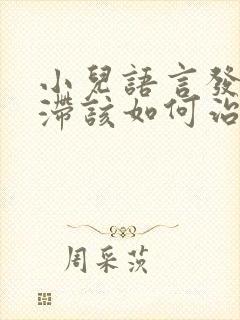 小兒語言發
滯該如何治
周采茨